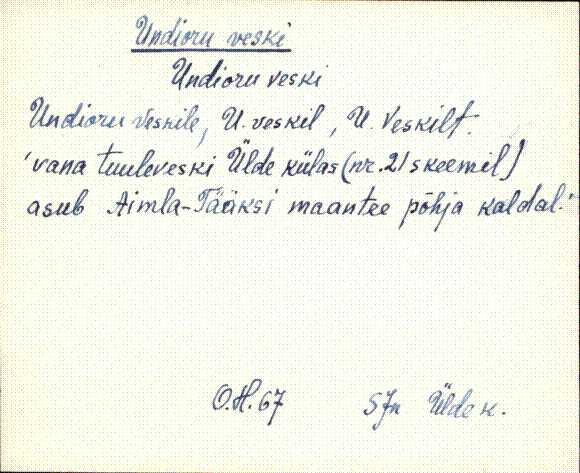 Undioru veski
Undioru veski
Undioru veskile, U. veskil, U. Veskilt.
'vana tuuleveski Ülde külas (nr. 21 skeemil)
asub Aimla-Tääksi maantee põhja kaldal.'
O.H. 67 SJn Ülde k.